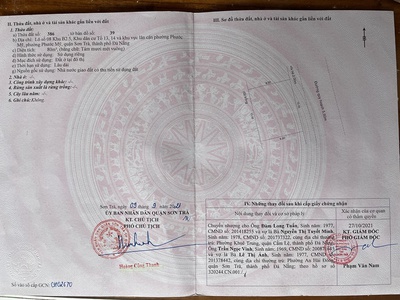 II. Thửa đất, nhà ở và tài sản khác gắn liền với đất
1. Thửa đất:
a) Thửa đất số: 386 tờ bản đồ số: 39
b) Địa chỉ: Lô số 08 Khu B2.5, Khu dân cư Tổ 13, 14 và khu vực lân cận phường Phước
Mỹ, phường Phước Mỹ, quận Sơn Trà, thành phố Đà Nẵng
c) Diện tích: 80m², (bằng chữ: Tám mươi mét vuông)
d) Hình thức sử dụng: Sử dụng riêng
đ) Mục đích sử dụng: Đất ở tại đô thị
e) Thời hạn sử dụng: Lâu dài
g) Nguồn gốc sử dụng: Nhà nước giao đất có thu tiền sử dụng đất
2. Nhà ở: -/-
3. Công trình xây dựng khác: -/-
4. Rừng sản xuất là rừng trồng: -/-
5. Cây lâu năm: -/-
6. Ghi chú: Không
Sơn Trà, ngày 09 tháng 3
ỦY BAN NHÂN DÂN QUẬN SƠN TRÀ
KT. CHỦ TỊCH
PHÓ CHỦ TỊCH
Hoàng Công Thanh
Số vào sổ cấp GCN:
III. Sơ đồ thửa đất, nhà ở và tài sản khác gắn liền với đất
IV. Những thay đổi sau khi cấp giấy chứng nhận
Nội dung thay đổi và cơ sở pháp lý
Xác nhận của cơ quan
có thẩm quyền
Chuyển nhượng cho Ông Đàm Long Tuấn, Sinh năm: 1977,
CMND số: 201418255 và vợ là Bà Nguyễn Thị Tuyết Minh
Sinh năm: 1978, CMND số: 201737322, cùng địa chỉ thường trú:
Phường Khuê Trung, quận Cẩm Lệ, thành phố Đà Nẵng
Ông Trần Ngọc Vinh, Sinh năm: 1969, CMND số:
và vợ là Bà Lê Thị Ánh, Sinh năm: 1970, CMND số:
201378442, cùng địa chỉ thường trú: Phường An Hải Đông,
quận Sơn Trà, thành phố Đà Nẵng, theo hồ sơ số
320244.CN.001./
27/10/2021
KT. GIÁM ĐỐC
PHÓ GIÁM ĐỐC
Phạm Văn Nam